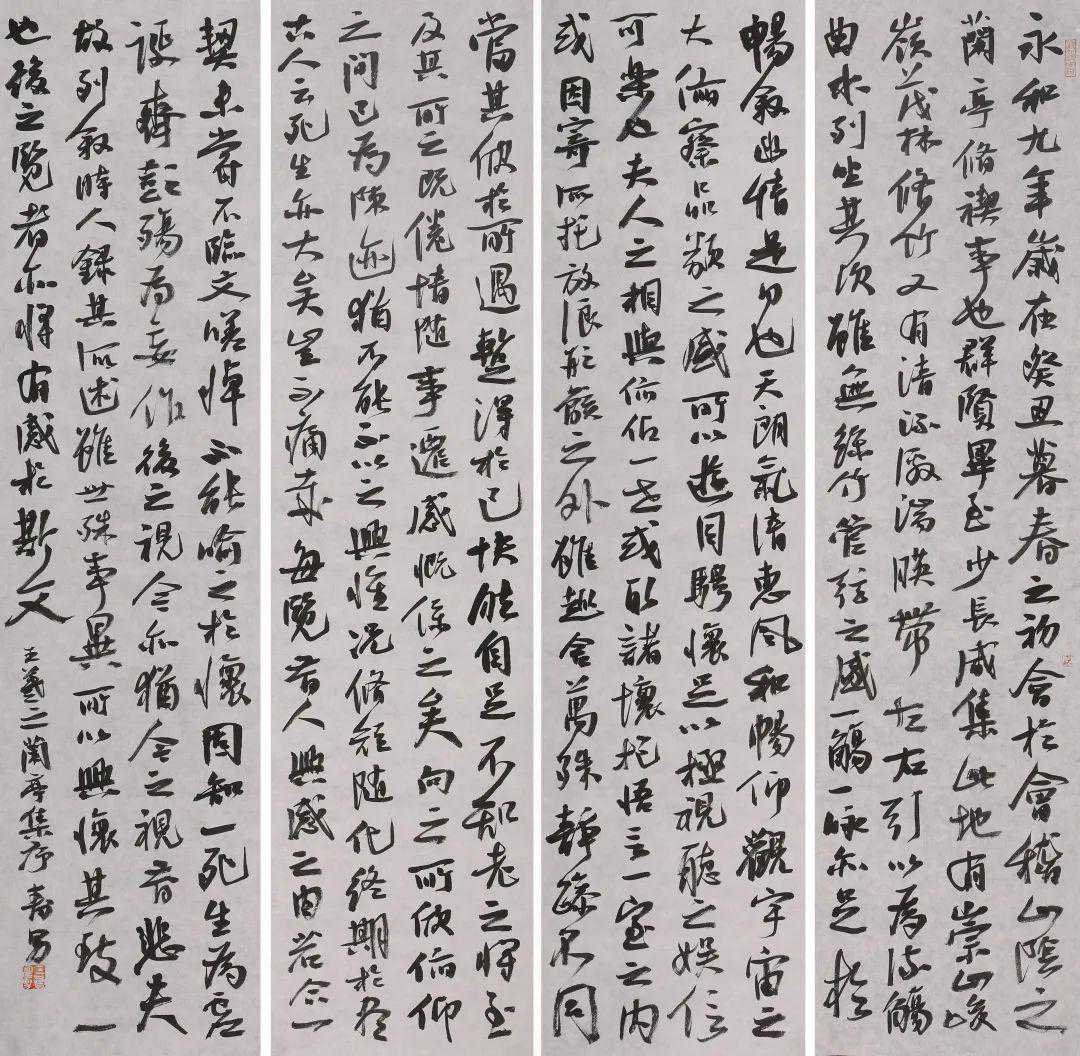 永和九年歲在癸丑暮春之初會於會稽山陰之
蘭亭脩禊事也群賢畢至少長咸集此地有崇山峻
嶺茂林修竹又有清流激湍映帶左右引以為流觴
曲水列坐其次雖無絲竹管弦之盛一觴一詠亦足於
暢敘幽情是日也天朗氣清惠風和暢仰觀宇宙之
大俯察品類之盛所以遊目騁懷足以極視聽之娛信
可樂也夫人之相與俯仰一世或取諸懷抱悟言一室之內
或因寄所托放浪形骸之外雖趣舍萬殊靜躁不同
當其欣於所遇蹔得於己快然自足不知老之將至
及其所之既倦情隨事遷感慨係之矣向之所欣俯仰
之間已為陳迹猶不能不以之興懷況脩短隨化終期於盡
古人云死生亦大矣豈不痛哉每覽昔人興感之由若合一
契未嘗不臨文嗟悼不能喻之於懷固知一死生為虛
誕齊彭殤為妄作後之視今亦猶今之視昔悲夫
故列敘時人錄其所述雖世殊事異所以興懷其致一
也後之覽者亦將有感於斯文
王羲之蘭亭集序